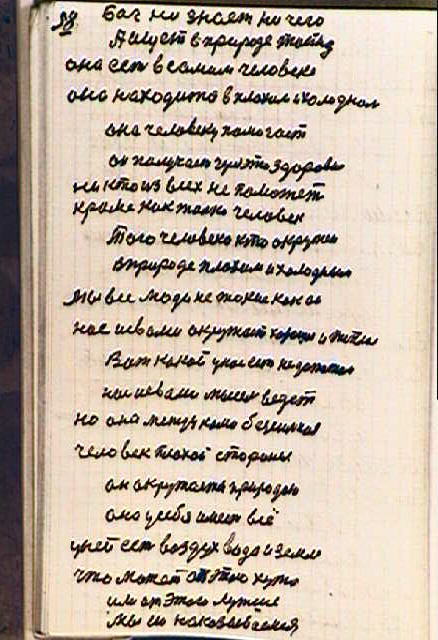 58. Бог ни знает ни чего
А ищет в природе тайну
она есть в самим человеке
она находится в плохим и холодном
она человеку помогает
он получает чуяство здоровие
ни кто из всех не поможет
кроме как только человек
Того человека кто окружен
в природе плохим и холодным
Мы все люди не такие как он
нас и вами окружает хорошо и тепло
Вот какой у нас есть недостаток
нас и вами ведет
но она между нами
человек плохой стороны
он окружается природою
она у себя имеет всё
у ней есть воздух вода и земля
что может от этого хуже
или от этого лучше
мы ею наказываемся